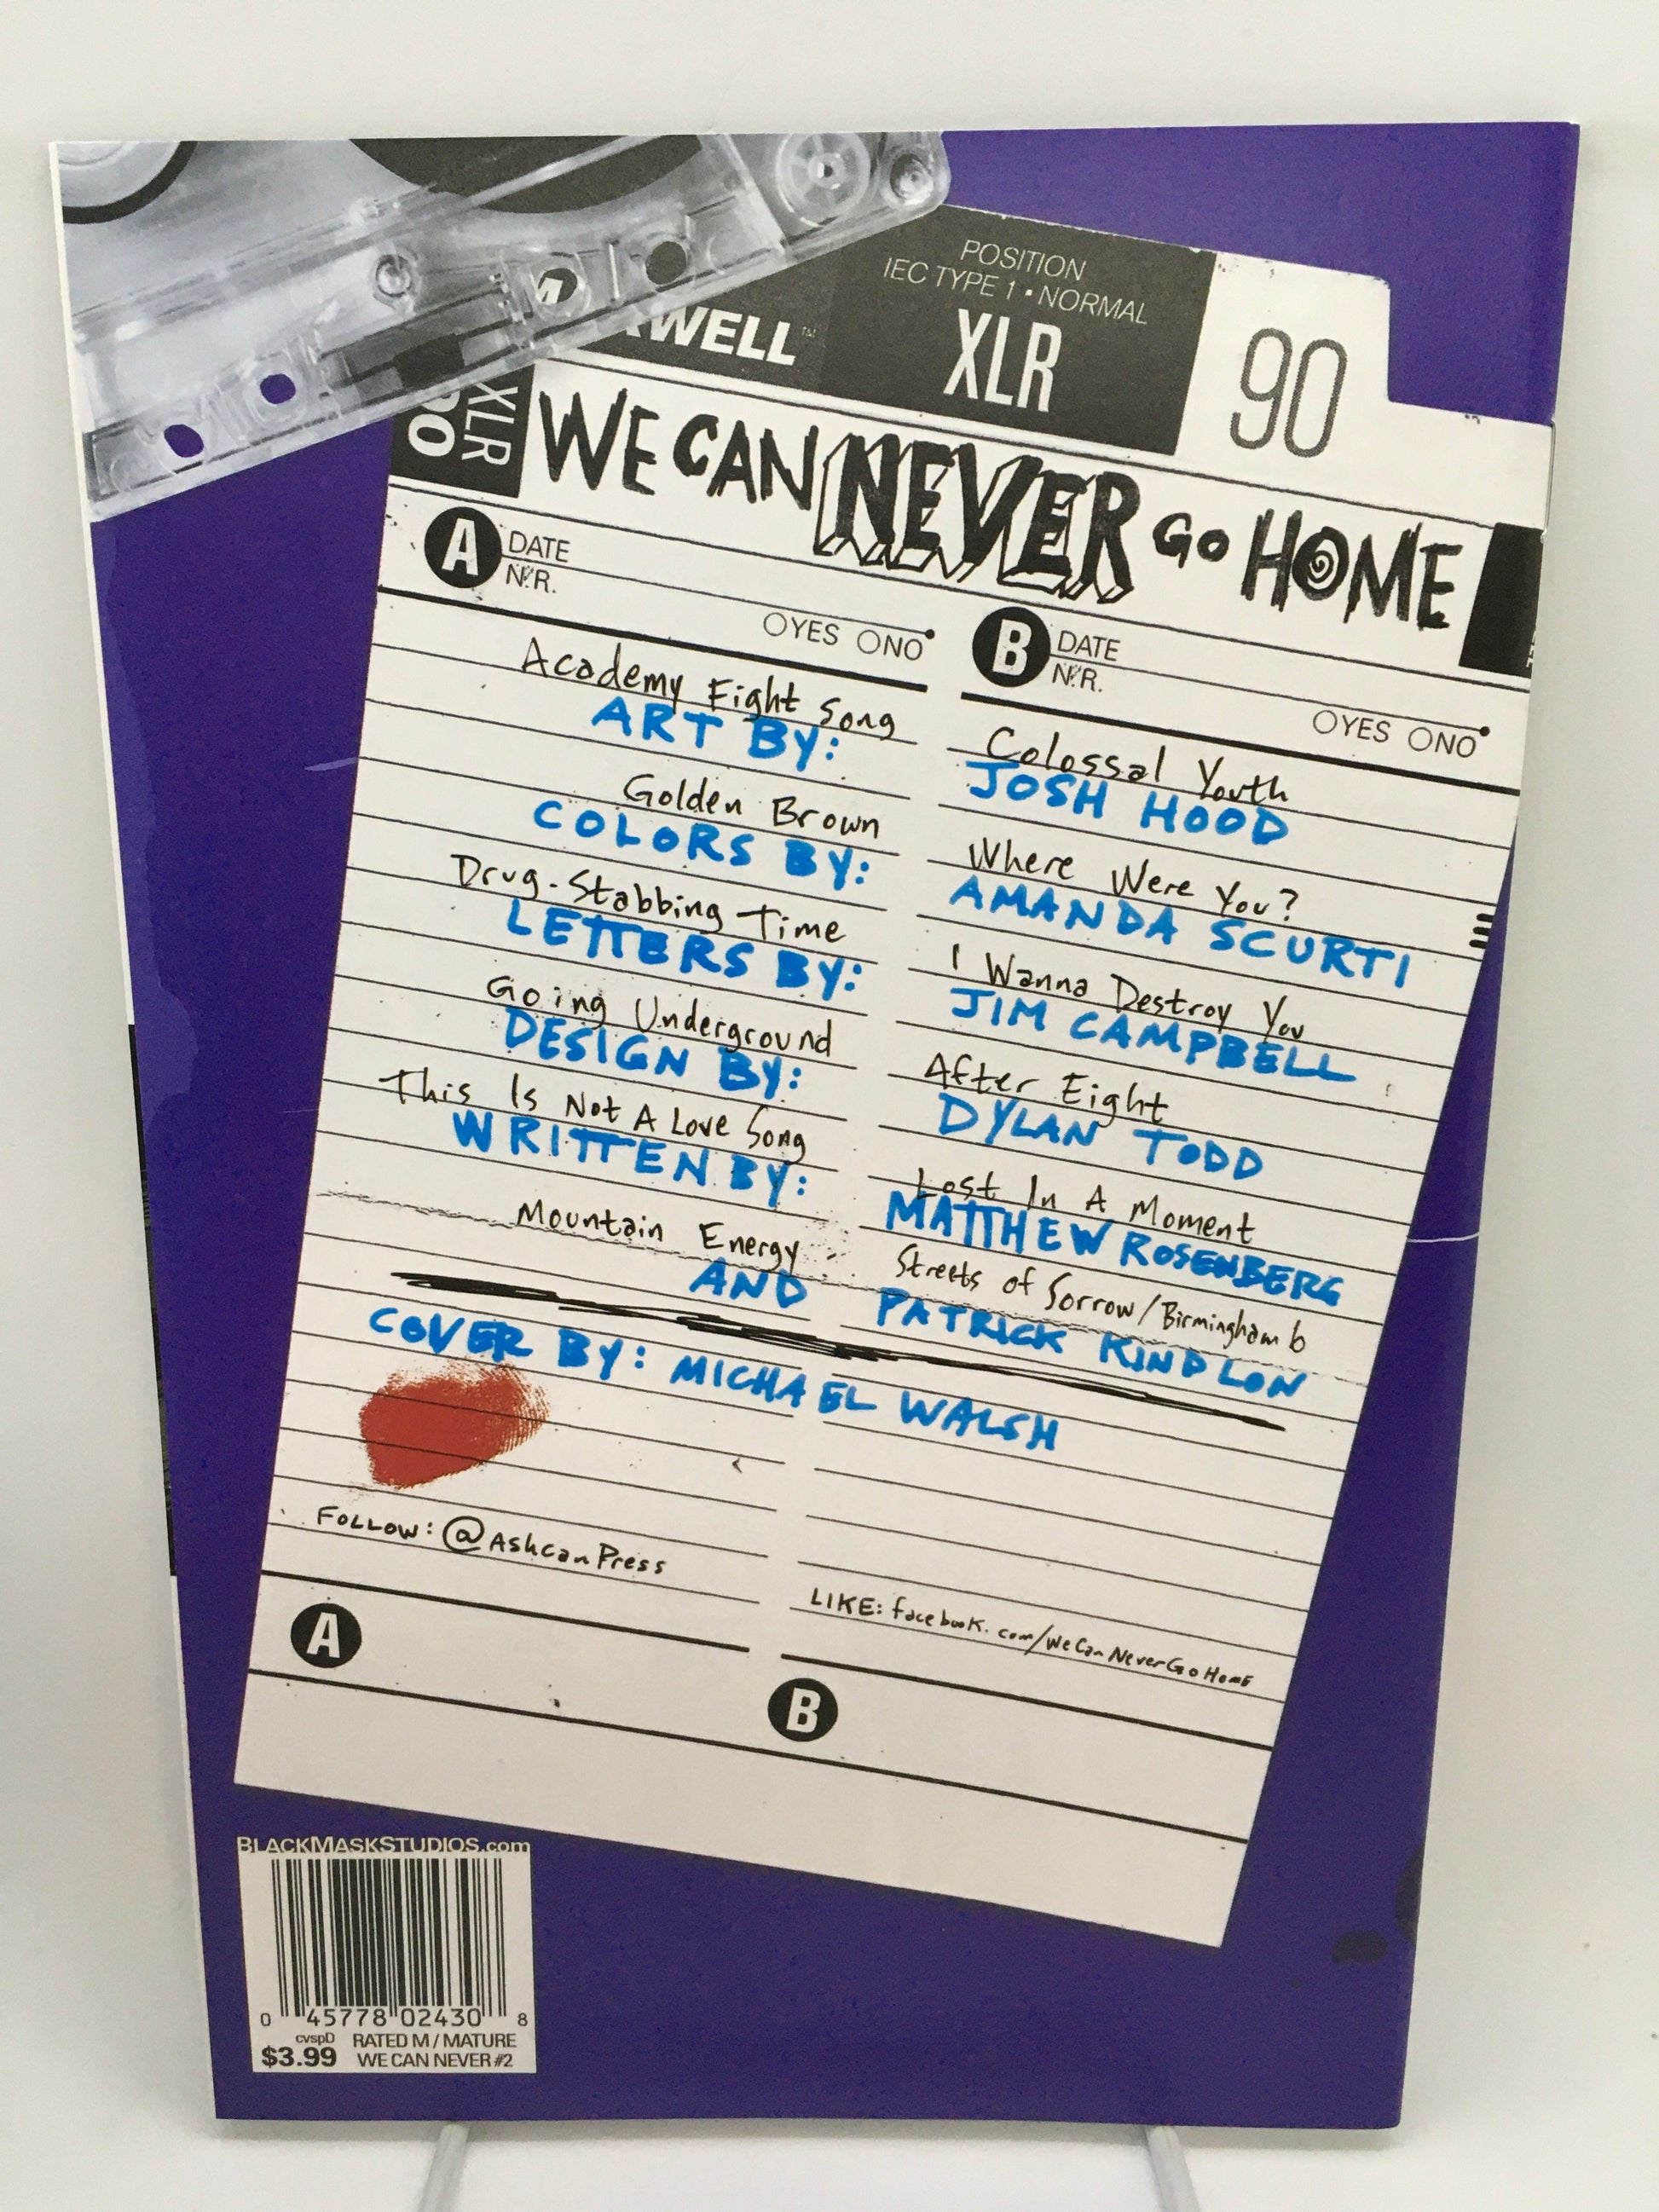 POSITION
IEC TYPE 1 • NORMAL
XLR
90
XLR
90
WE CAN NEVER GO HOME
A DATE
N.R.
YES NO
B DATE
N.R.
YES NO
Academy Fight Song
ART BY:
Golden Brown
COLORS BY:
Drug-Stabbing Time
LETTERS BY:
Going Underground
DESIGN BY:
This Is Not A Love Song
WRITTEN BY:
Mountain Energy
AND
Colossal Youth
JOSH HOOD
Where Were You?
AMANDA SCURTI
I Wanna Destroy You
JIM CAMPBELL
After Eight
DYLAN TODD
Lost In A Moment
MATTHEW ROSENBERG
Streets of Sorrow/Birmingham 6
PATRICK KINDLON
COVER BY: MICHAEL WALSH
FOLLOW: @AshcanPress
LIKE: facebook.com/WeCanNeverGoHome
A
B
BLACKMASKSTUDIOS.com
0 45778 02430 8
cvspD RATED M / MATURE
$3.99 WE CAN NEVER #2